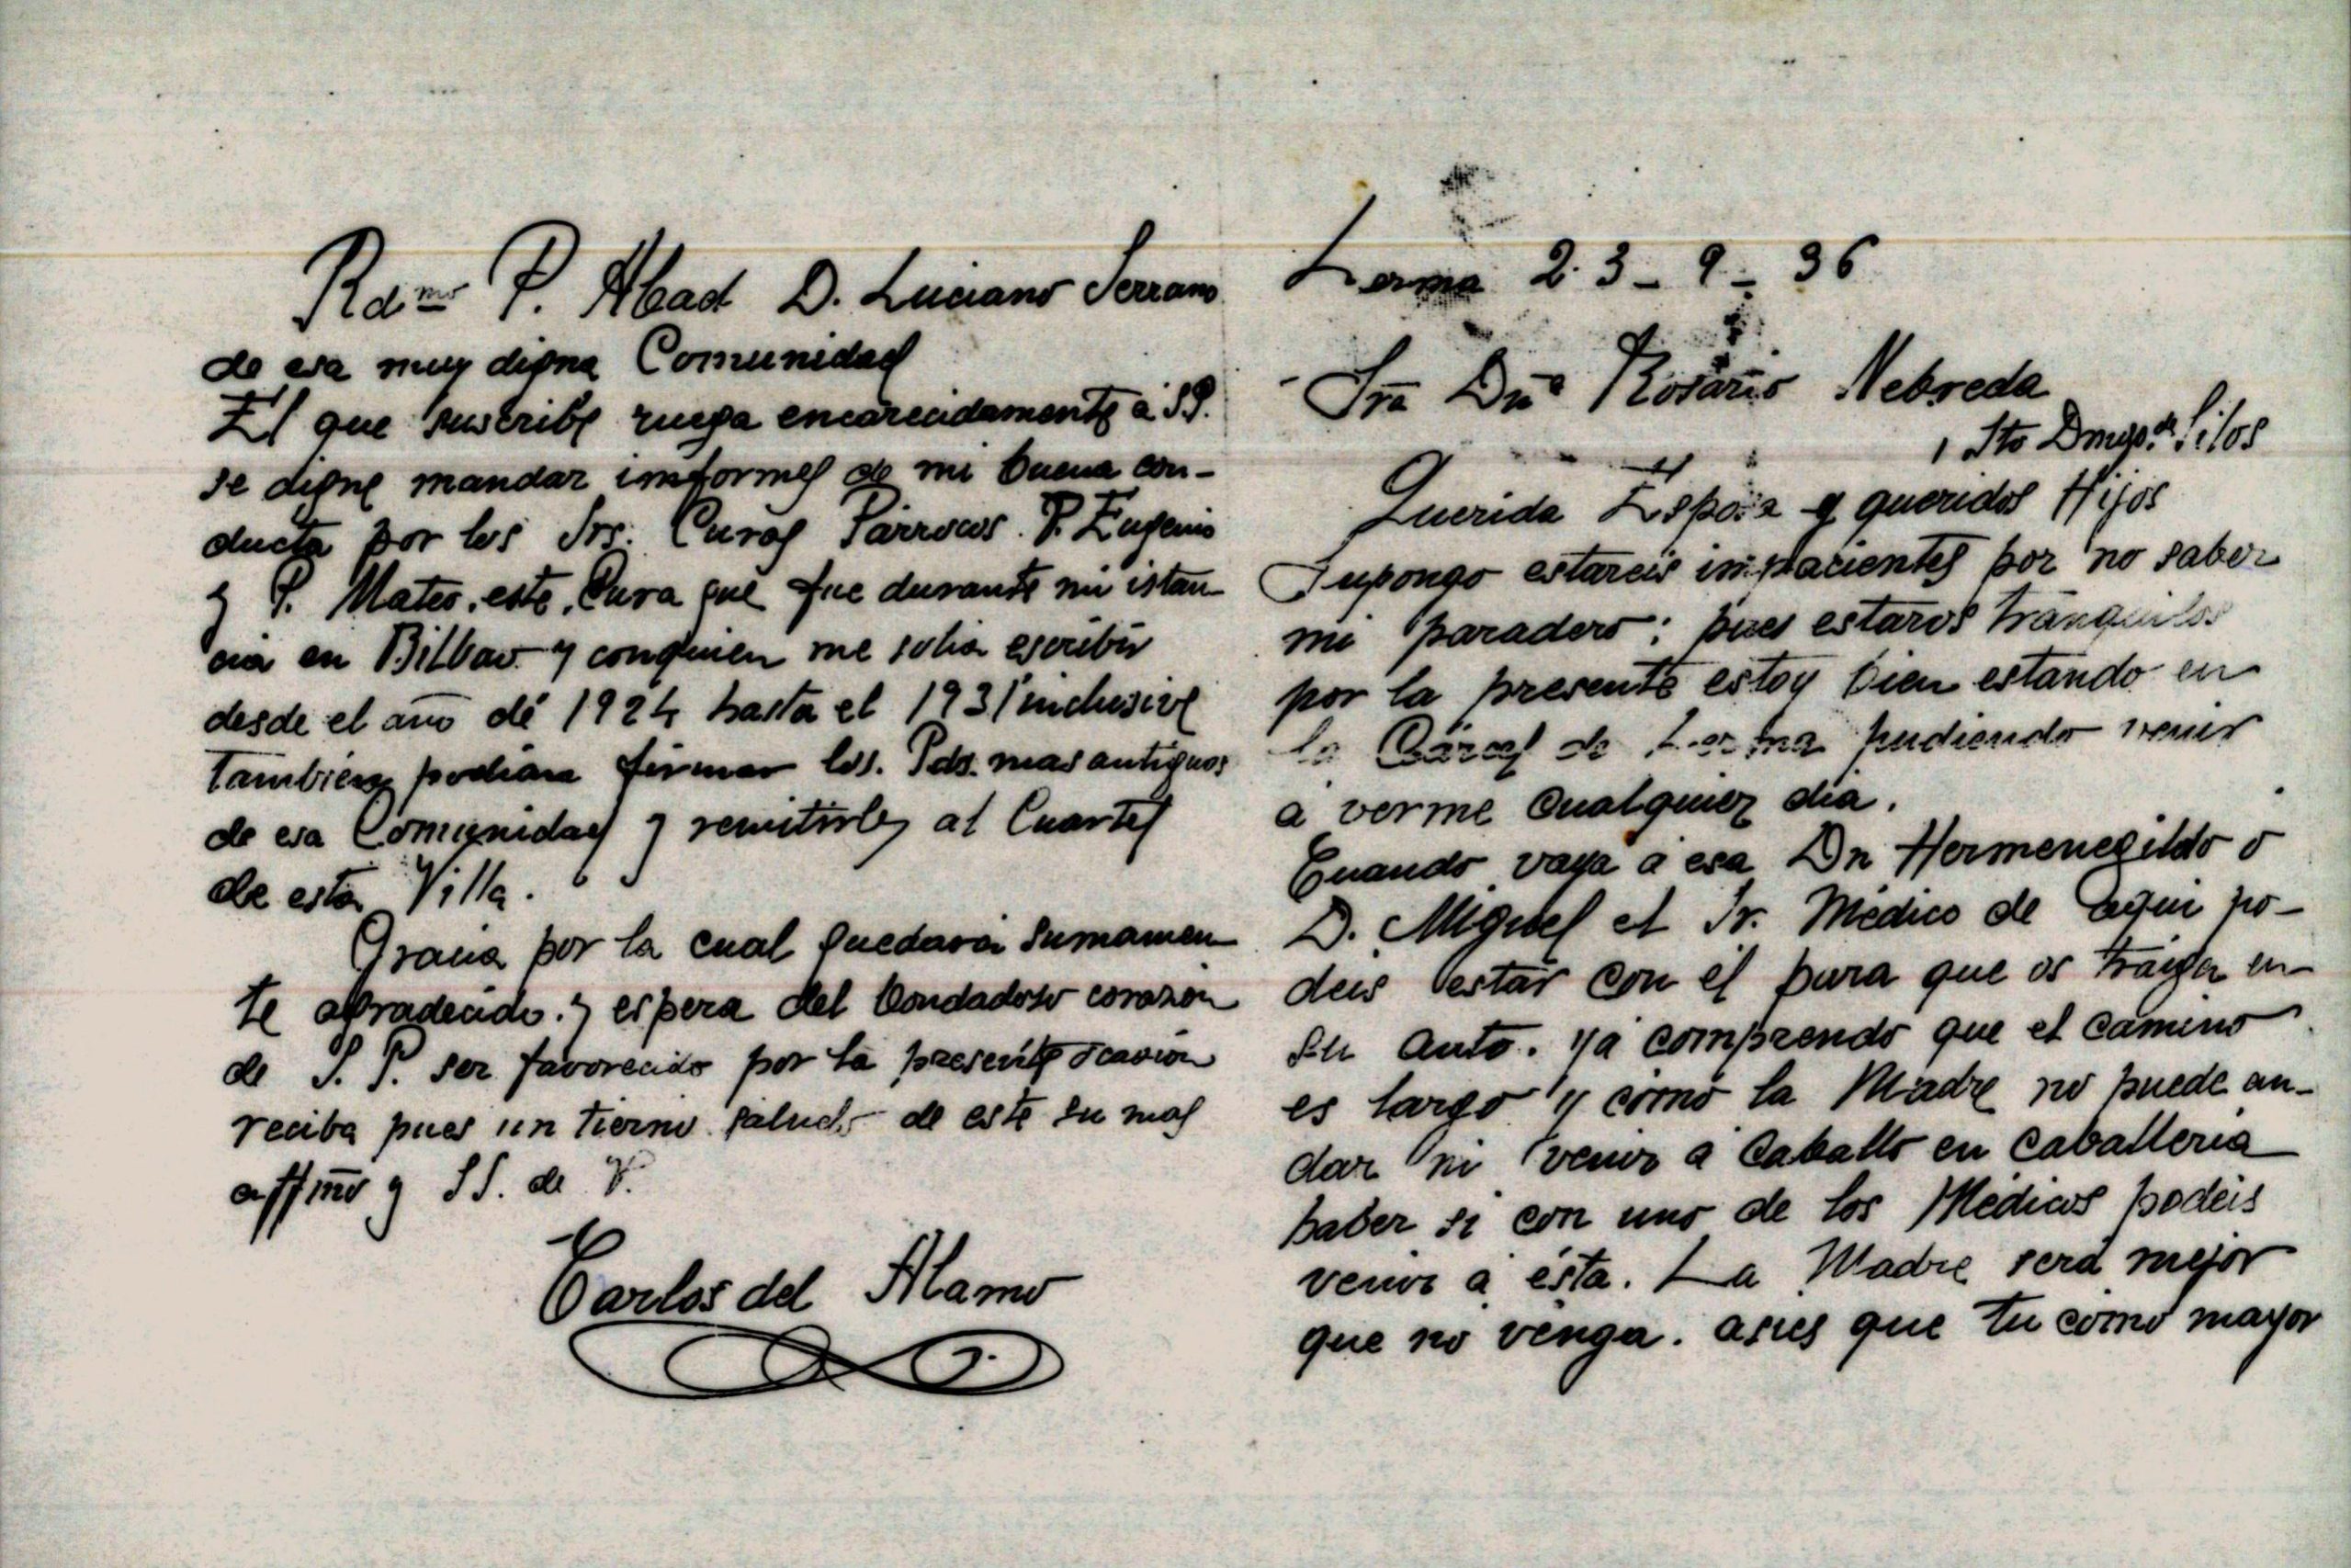 Rdmo P. Abad D. Luciano Serrano
de esa muy digna Comunidad
El que suscribe ruega encarecidamente á S.P.
se digne mandar imformes de mi buena con-
ducta por los Srs. Curas Párrocos. P. Eugenio
y P. Mateo, este, Cura que fue durante mi istan-
cia en Bilbao y conquien me solia escribir
desde el año de 1924 hasta el 1931 inclusive
Tambien podian firmar los. Pds. mas antiguos
de esa Comunidad y remitirles al Cuartel
de esta Villa.
Gracia por la cual quedará sumamen-
te agradecido. y espera del bondadoso corazón
de S. P. ser favorecido por la presente ocasión
reciba pues un tierno saludo de este su mas
affmo y SS. de V.
Carlos del Alamo
Lerma 23-9-36
Sra Dña Rosario Nebreda
Sto Dmgo. de Silos
Querida Esposa y queridos Hijos
Supongo estareis impacientes por no saber
mi paradero: pues estaros tranquilos
por la presente estoy bien estando en
la Cárcel de Lerma pudiendo venir
á verme cualquier dia.
Cuando vaya á esa Dn Hermenegildo o
D. Miguel el Sr. Médico de aqui po-
deis estar con él para que os traiga en
su auto. ya comprendo que el camino
es largo y como la Madre no puede an-
dar ni venir á caballo en caballeria
haber si con uno de los Médicos podéis
venir á ésta. La Madre será mejor
que no venga. asies que tu como mayor